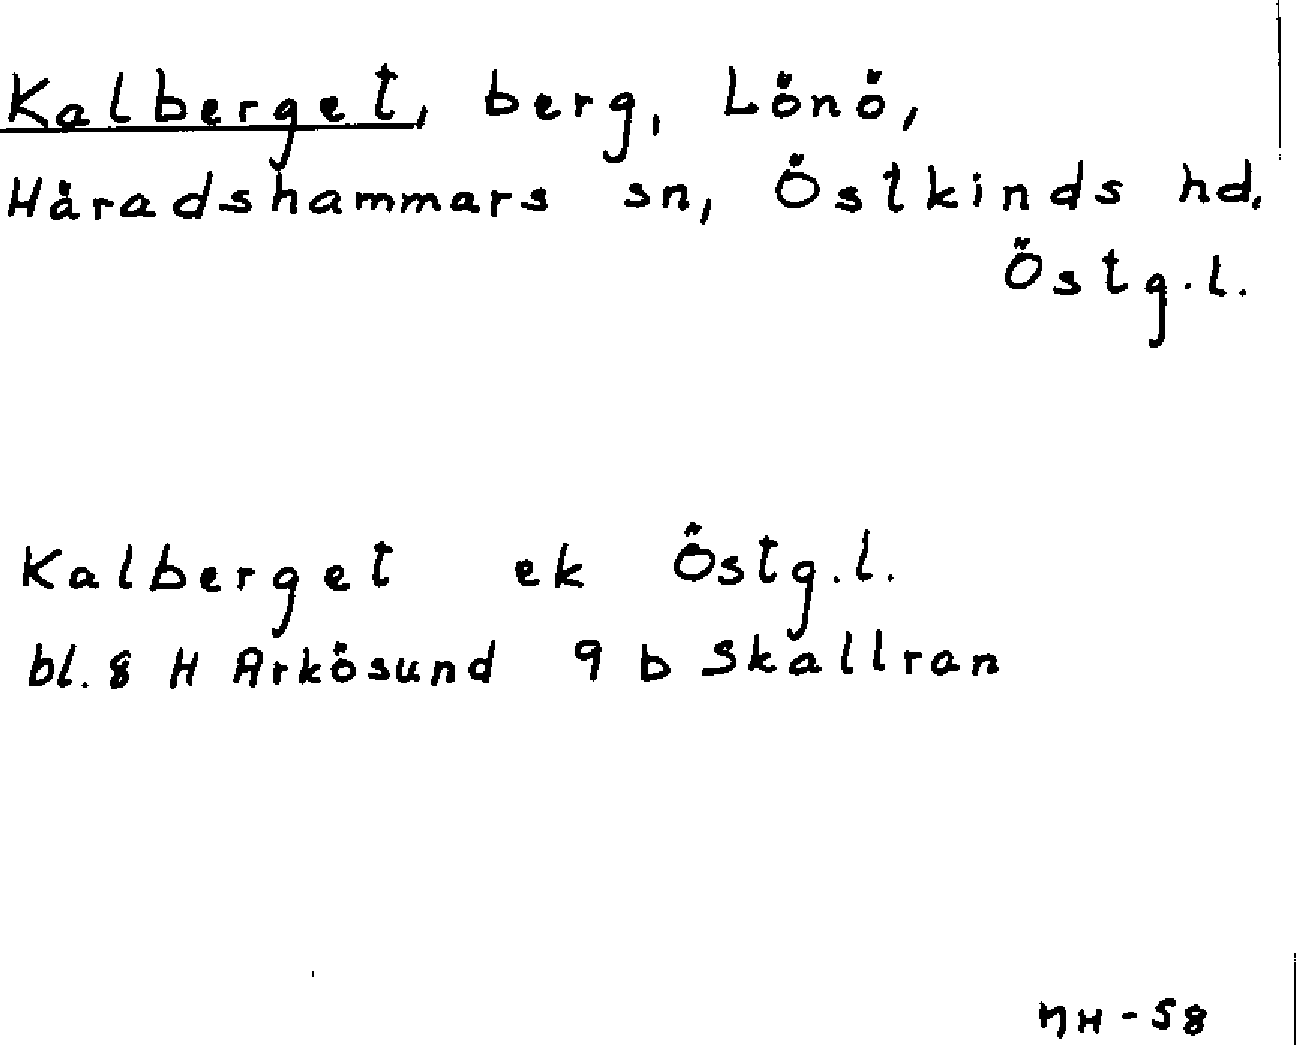 Kalberget, berg, Lönö,
Häradshammars sn, Östkinds hd,
Östg.l.
Kalberget ek Östg.l.
bl. 8 H Arkösund 9 b Skällran
NH-58